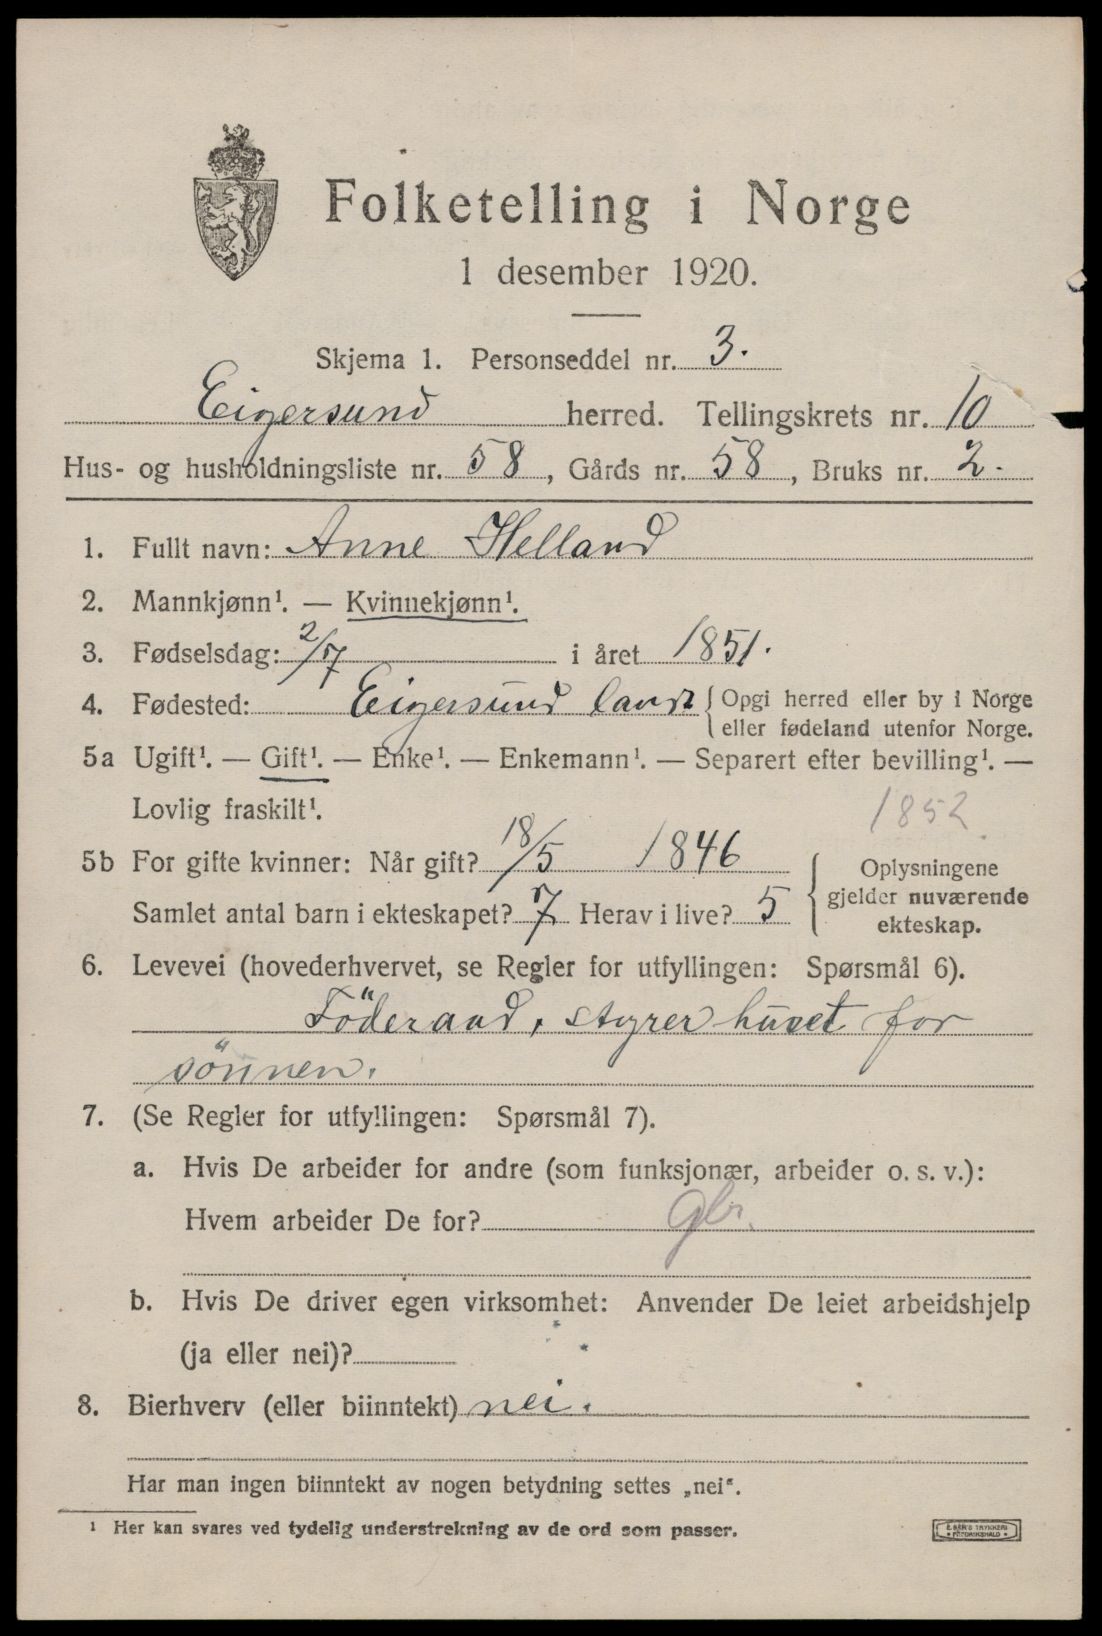 Folketelling i Norge
1 desember 1920.
Skjema 1. Personseddel nr. 3.
Eigersund herred. Tellingskrets nr. 10
Hus- og husholdningsliste nr. 58, Gårds nr. 58, Bruks nr. 2.
1. Fullt navn: Anne Helland
2. Mannkjønn¹. — Kvinnekjønn¹.
3. Fødselsdag: 2/7 i året 1851.
4. Fødested: Eigersund land { Opgi herred eller by i Norge
eller fødeland utenfor Norge.
5a Ugift¹. — Gift¹. — Enke¹. — Enkemann¹. — Separert efter bevilling¹. —
Lovlig fraskilt¹. 1852
5b For gifte kvinner: Når gift? 18/5 1846
Samlet antal barn i ekteskapet? 7 Herav i live? 5
{ Oplysningene
gjelder nuværende
ekteskap.
6. Levevei (hovederhvervet, se Regler for utfyllingen: Spørsmål 6).
Föderaad, styrer huset for
sönnen.
7. (Se Regler for utfyllingen: Spørsmål 7).
a. Hvis De arbeider for andre (som funksjonær, arbeider o. s. v.):
Hvem arbeider De for? gbr.
b. Hvis De driver egen virksomhet: Anvender De leiet arbeidshjelp
(ja eller nei)?
8. Bierhverv (eller biinntekt) nei.
Har man ingen biinntekt av nogen betydning settes „nei".
¹ Her kan svares ved tydelig understrekning av de ord som passer.